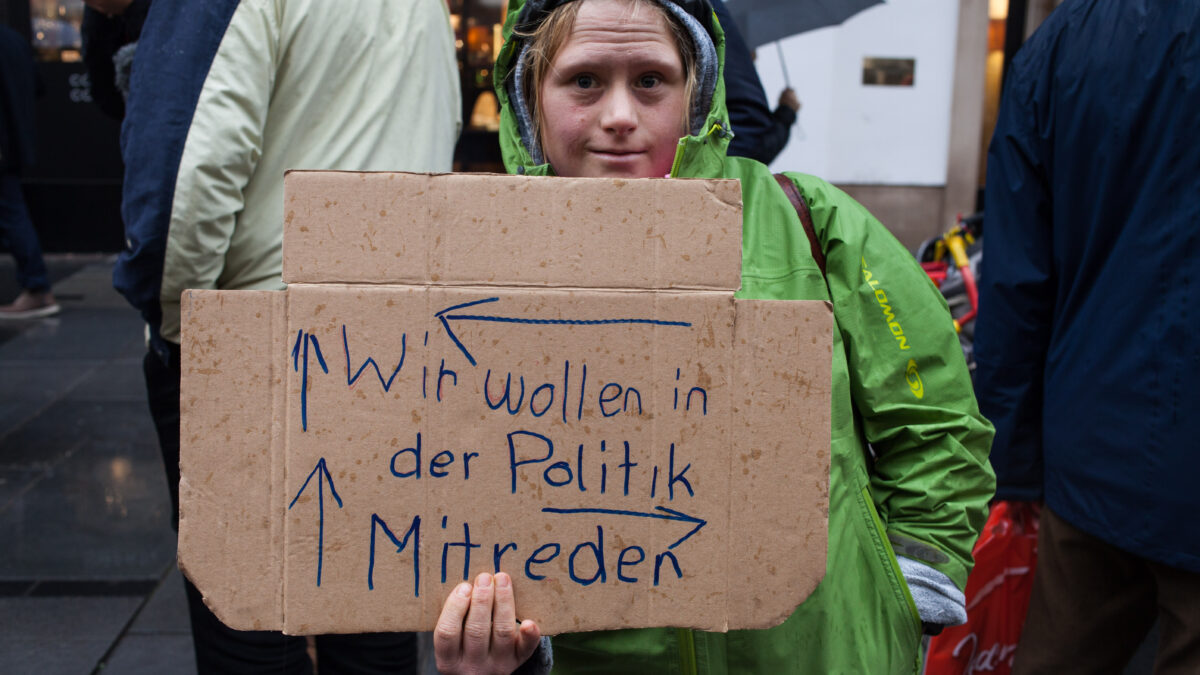 Wir wollen in
der Politik
Mitreden
SALOMON